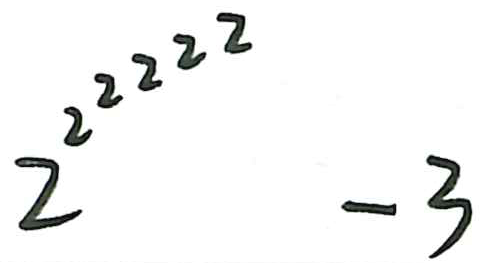 2^{2^{2^{2^{2^{2}}}}} - 3